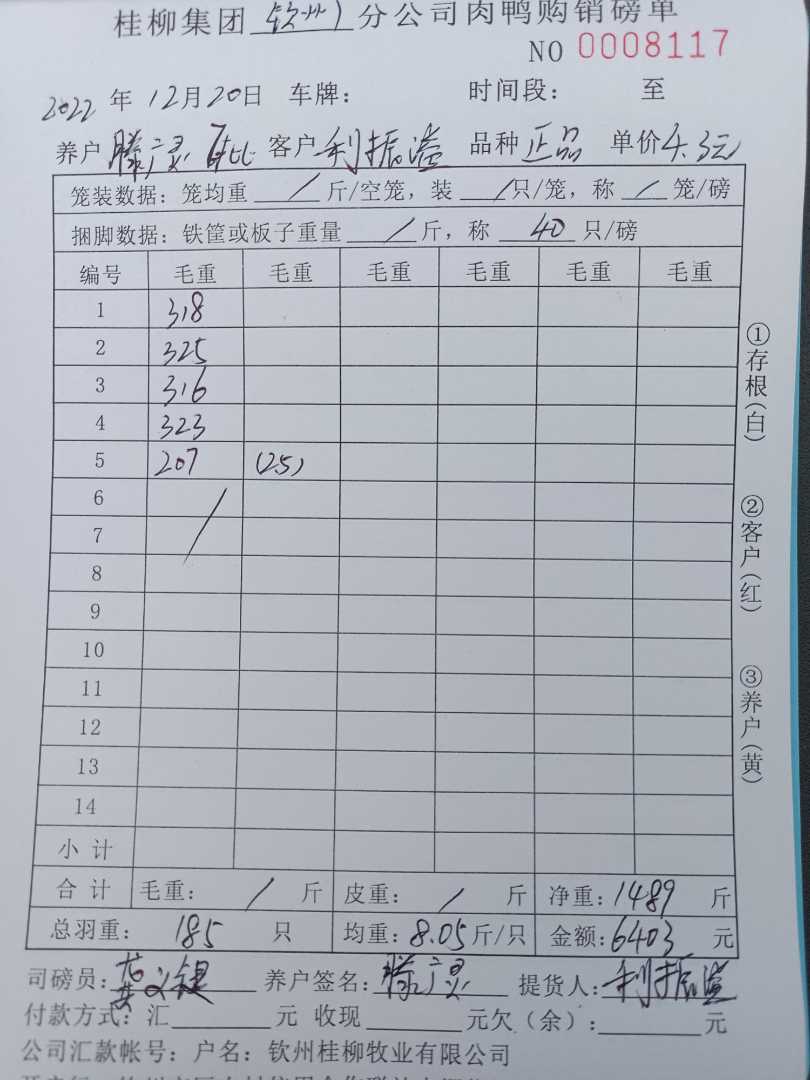 桂柳集团 钦州 分公司肉鸭购销磅单
NO 0008117
2022 年 12月20日 车牌： 时间段： 至
养户 滕广灵 客户 利振溢 品种 正品 单价 4.3元
笼装数据：笼均重 / 斤/空笼，装 / 只/笼，称 / 笼/磅
捆脚数据：铁筐或板子重量 / 斤，称 40 只/磅
编号 毛重 毛重 毛重 毛重 毛重 毛重
1 318
2 325
3 316
4 323
5 207 (25)
6 /
7
8
9
10
11
12
13
14
小计
合计 毛重： / 斤 皮重： / 斤 净重：1489 斤
总羽重： 185 只 均重：8.05斤/只 金额：6403 元
司磅员： 养户签名：滕广灵 提货人：利振溢
付款方式：汇 元 收现 元欠（余）： 元
公司汇款帐号：户名：钦州桂柳牧业有限公司
①存根（白）
②客户（红）
③养户（黄）